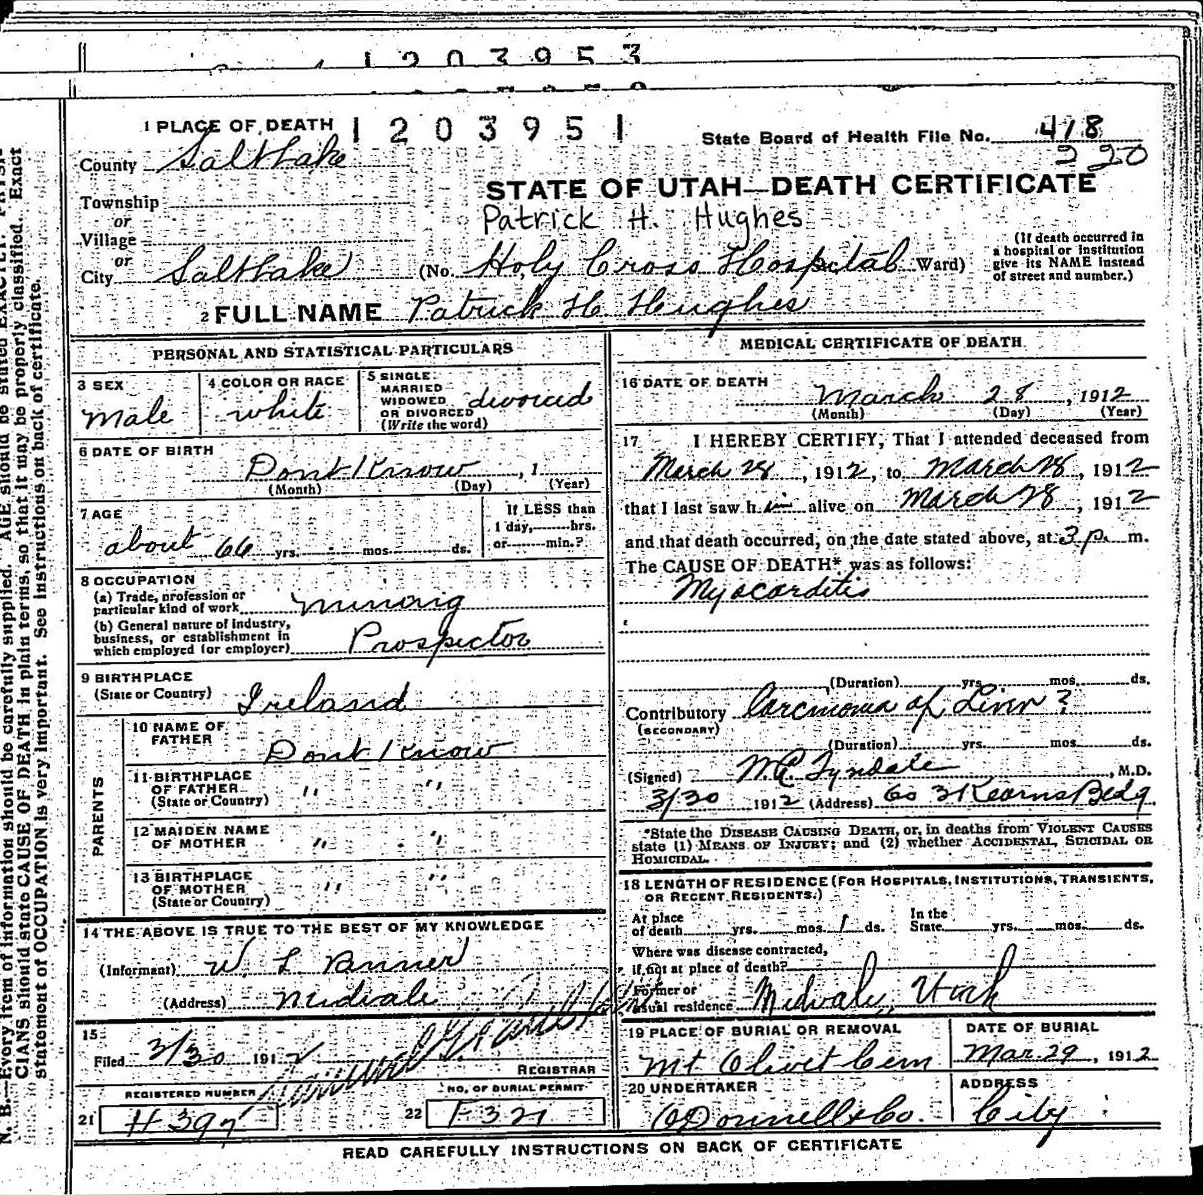 1203953
1 PLACE OF DEATH 1203951 State Board of Health File No. 418
220
County Salt Lake
STATE OF UTAH—DEATH CERTIFICATE
Township
or
Village
or
City Salt Lake
Patrick H. Hughes
(No. Holy Cross Hospital Ward)
(If death occurred in
a hospital or institution
give its NAME instead
of street and number.)
2 FULL NAME Patrick H Hughes
PERSONAL AND STATISTICAL PARTICULARS
3 SEX
Male
4 COLOR OR RACE
white
5 SINGLE
MARRIED
WIDOWED
OR DIVORCED
(Write the word)
divorced
6 DATE OF BIRTH
Dont Know , 1
(Month) (Day) (Year)
7 AGE
about 66 yrs. mos. ds.
If LESS than
1 day, hrs.
or min.?
8 OCCUPATION
(a) Trade, profession or
particular kind of work mining
(b) General nature of industry,
business, or establishment in
which employed (or employer) Prospector
9 BIRTHPLACE
(State or Country) Ireland
PARENTS
10 NAME OF
FATHER Dont Know
11 BIRTHPLACE
OF FATHER
(State or Country) " "
12 MAIDEN NAME
OF MOTHER " "
13 BIRTHPLACE
OF MOTHER
(State or Country) " "
14 THE ABOVE IS TRUE TO THE BEST OF MY KNOWLEDGE
(Informant) W. L.
(Address) Midvale
15
Filed 3/30 1912
REGISTRAR
REGISTERED NUMBER
21 H397
NO. OF BURIAL PERMIT
22 F321
MEDICAL CERTIFICATE OF DEATH
16 DATE OF DEATH
March 28, 1912
(Month) (Day) (Year)
17 I HEREBY CERTIFY, That I attended deceased from
March 28, 1912, to March 28, 1912
that I last saw him alive on March 28, 1912
and that death occurred, on the date stated above, at 3 p. m.
The CAUSE OF DEATH* was as follows:
Myocarditis
(Duration) yrs. mos. ds.
Contributory Carcinoma of Liver?
(SECONDARY)
(Duration) yrs. mos. ds.
(Signed) Tyndale, M.D.
3/30 1912 (Address) 603 Kearns Bldg
*State the DISEASE CAUSING DEATH, or, in deaths from VIOLENT CAUSES
state (1) MEANS OF INJURY; and (2) whether ACCIDENTAL, SUICIDAL OR
HOMICIDAL.
18 LENGTH OF RESIDENCE (FOR HOSPITALS, INSTITUTIONS, TRANSIENTS,
OR RECENT RESIDENTS.)
At place
of death yrs. mos. 1 ds.
In the
State yrs. mos. ds.
Where was disease contracted,
if not at place of death?
Former or
usual residence Midvale, Utah
19 PLACE OF BURIAL OR REMOVAL
Mt Olivet Cem
DATE OF BURIAL
Mar 29, 1912
20 UNDERTAKER
O'Donnell & Co.
ADDRESS
City
READ CAREFULLY INSTRUCTIONS ON BACK OF CERTIFICATE
N. B.—Every item of information should be carefully supplied. AGE should be stated EXACTLY.
CIANS should state CAUSE OF DEATH in plain terms, so that it may be properly classified. Exact
statement of OCCUPATION is very important. See instructions on back of certificate.